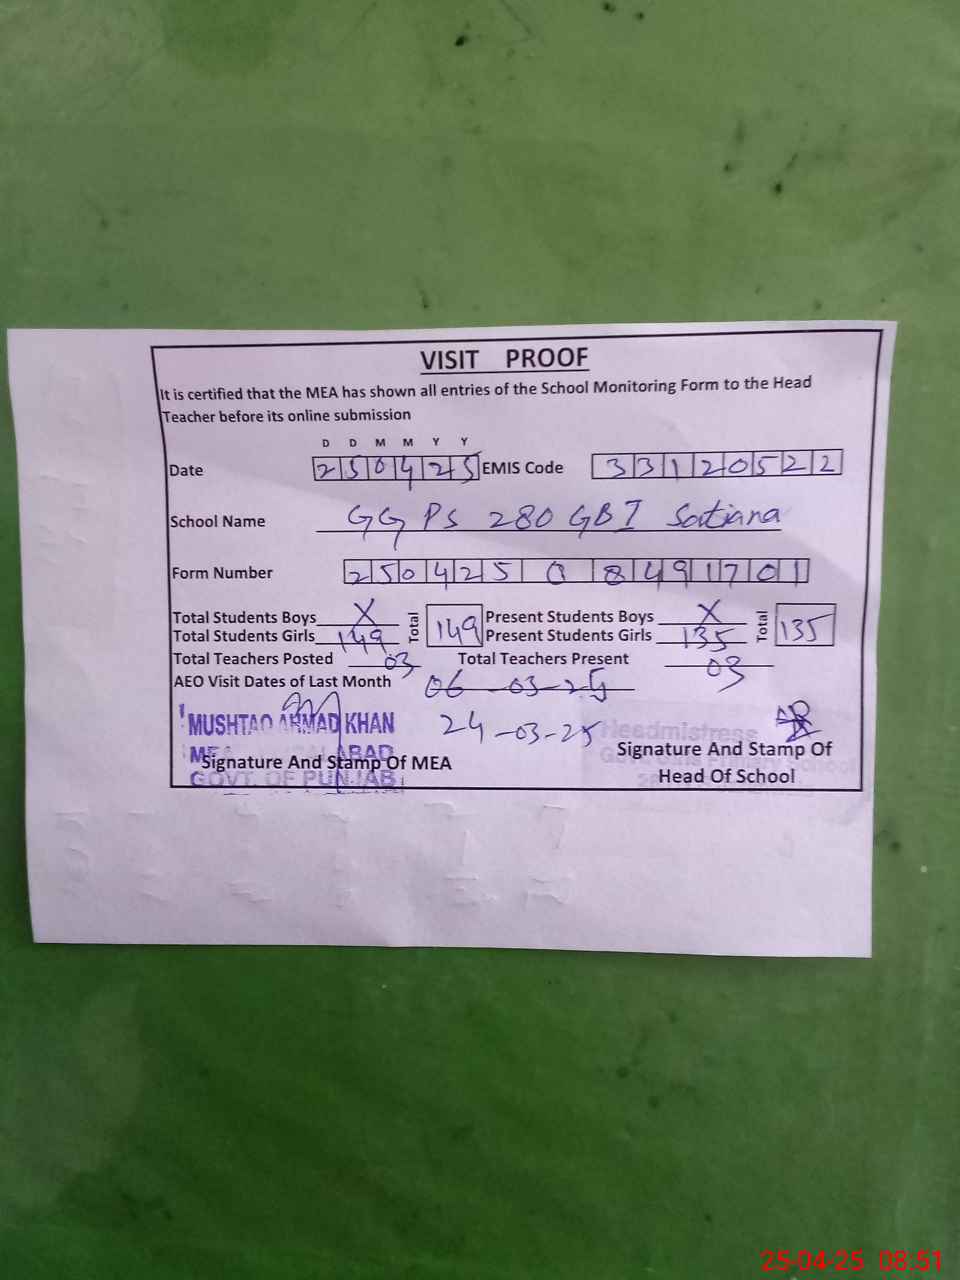 VISIT PROOF
It is certified that the MEA has shown all entries of the School Monitoring Form to the Head
Teacher before its online submission
D D M M Y Y
Date 250425 EMIS Code 33120522
School Name GGPS 280 GB I Satiana
Form Number 25042508491701
Total Students Boys X Total 149 Present Students Boys X Total 135
Total Students Girls 149 Present Students Girls 135
Total Teachers Posted 03 Total Teachers Present 03
AEO Visit Dates of Last Month 06-03-25
24-03-25
MUSHTAQ AHMAD KHAN Headmistress
MEA
Signature And Stamp Of MEA Signature And Stamp Of
GOVT. OF PUNJAB Head Of School
25-04-25 08:51